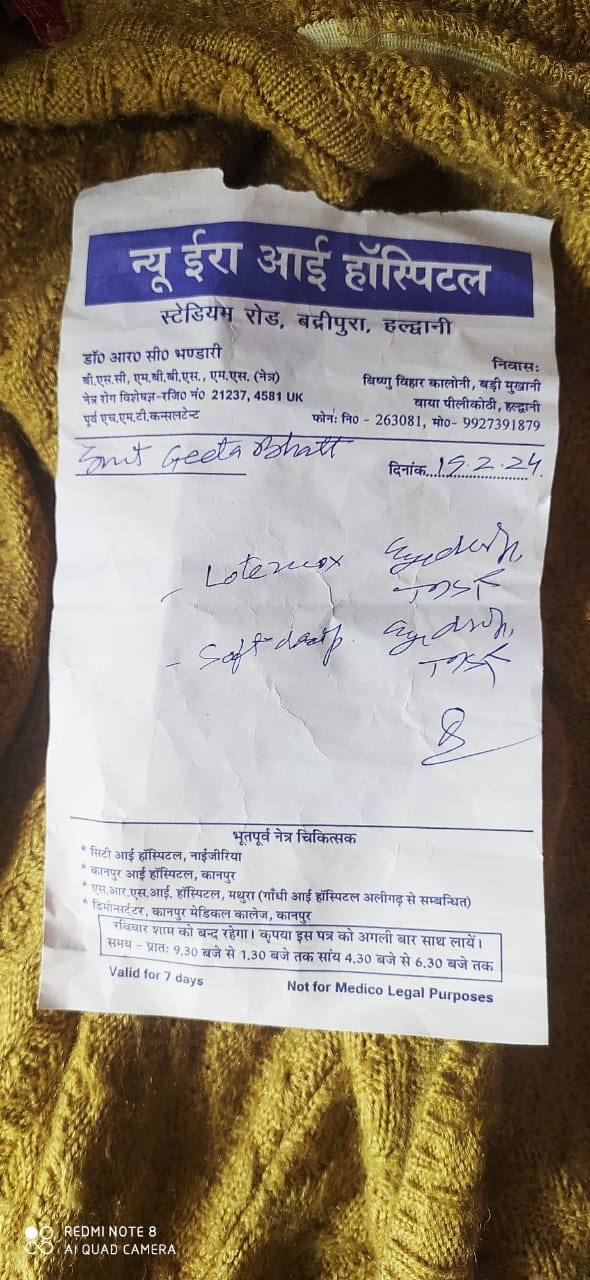 न्यू ईरा आई हॉस्पिटल
स्टेडियम रोड, बद्रीपुरा, हल्द्वानी
डॉ0 आर0 सी0 भण्डारी
बी.एस.सी, एम.बी.बी.एस., एम.एस. (नेत्र)
नेत्र रोग विशेषज्ञ-रजि0 नं0 21237, 4581 UK
पूर्व एच.एम.टी.कन्सलटेन्ट
निवास:
विष्णु विहार कालोनी, बड़ी मुखानी
वाया पीलीकोठी, हल्द्वानी
फोन: नि0 - 263081, मो0- 9927391879
Smt Geeta Bhatt
दिनांक 19.2.24
- Lotemox Eyedrop
- Soft drop. Eyedrop
भूतपूर्व नेत्र चिकित्सक
* सिटी आई हॉस्पिटल, नाईजीरिया
* कानपुर आई हॉस्पिटल, कानपुर
* एस.आर.एस.आई. हॉस्पिटल, मथुरा (गाँधी आई हॉस्पिटल अलीगढ़ से सम्बन्धित)
* डिमोनसर्टटर, कानपुर मेडिकल कालेज, कानपुर
रविवार शाम को बन्द रहेगा। कृपया इस पत्र को अगली बार साथ लायें।
समय - प्रात: 9.30 बजे से 1.30 बजे तक सांय 4.30 बजे से 6.30 बजे तक
Valid for 7 days
Not for Medico Legal Purposes
REDMI NOTE 8
AI QUAD CAMERA